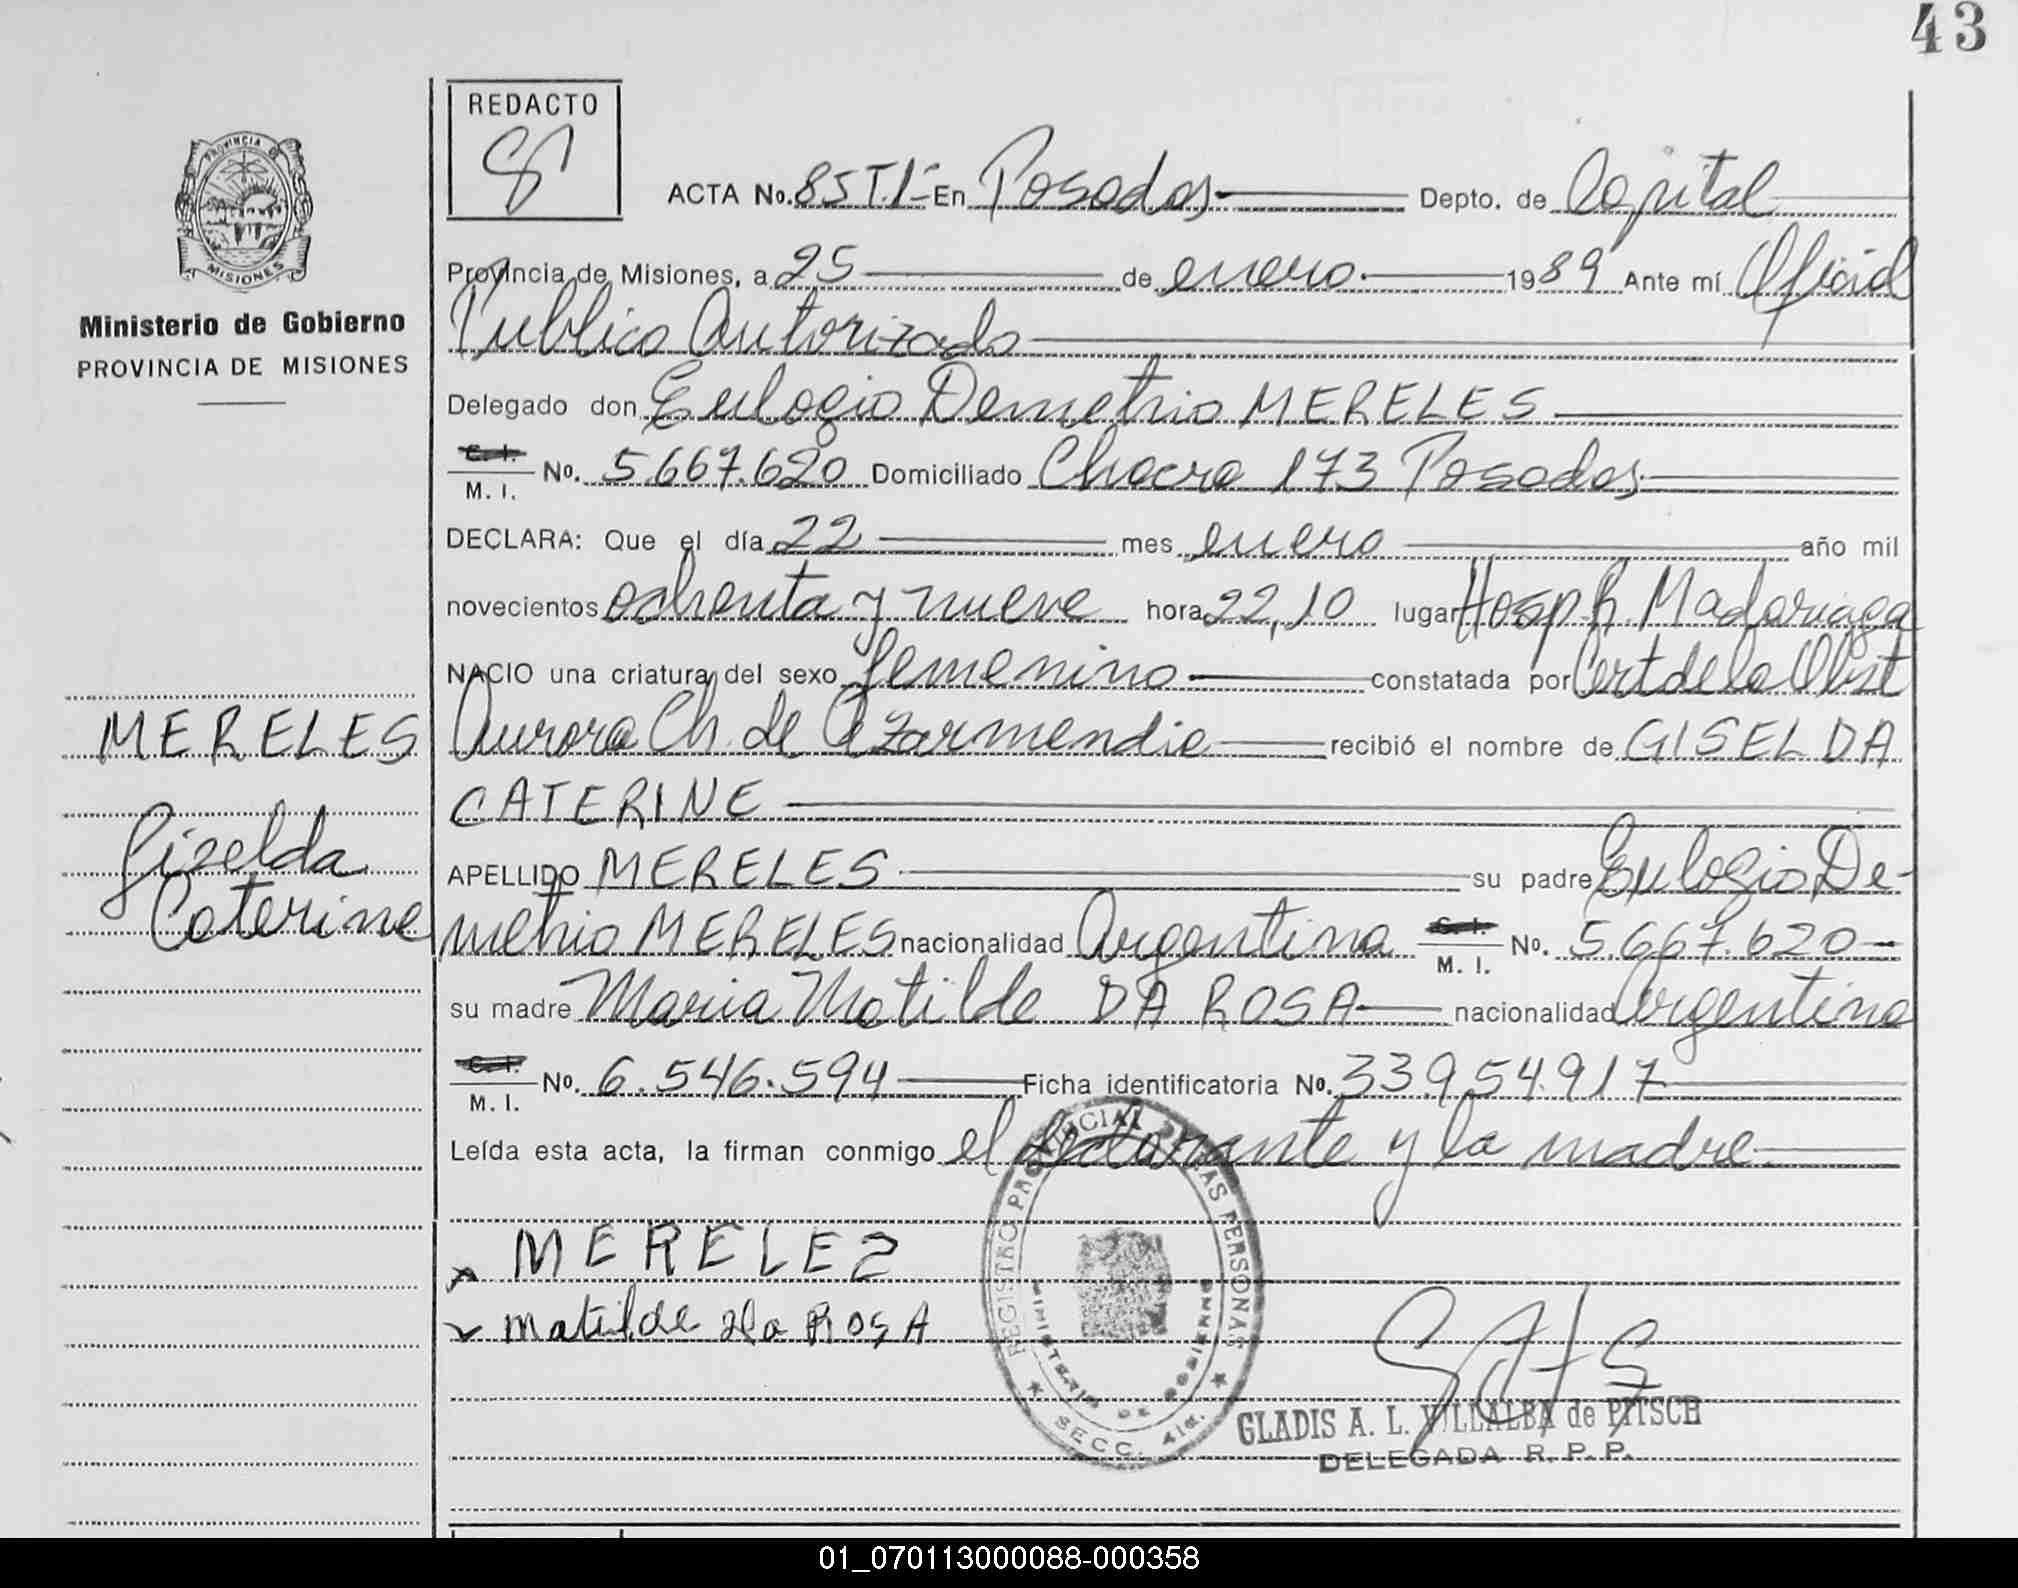 43
REDACTO
ACTA No. 85 T.1º En Posadas Depto. de Capital
Provincia de Misiones, a 25 de enero 1989 Ante mí Oficial
Publico Autorizado
Delegado don Eulogio Demetrio MERELES
C. I. M. I. No. 5.667.620 Domiciliado Chacra 173 Posadas
DECLARA: Que el día 22 mes enero año mil
novecientos ochenta y nueve hora 22,10 lugar Hosp. R. Madariaga
NACIO una criatura del sexo femenino constatada por Cert de la Obst
Aurora Ch. de recibió el nombre de GISELDA
CATERINE
APELLIDO MERELES su padre Eulogio De-
metrio MERELES nacionalidad Argentina C. I. M. I. No. 5.667.620
su madre Maria Matilde DA ROSA nacionalidad Argentina
C. I. M. I. No. 6.546.594 Ficha identificatoria No. 33954917
Leída esta acta, la firman conmigo el declarante y la madre
MERELEZ
Matilde da ROSA
GLADIS A. L. VILLALBA de PITSCH
DELEGADA R. P. P.
REGISTRO PROVINCIAL DE LAS PERSONAS
MINISTERIO DE GOBIERNO
SECC. 41a.
PROVINCIA DE
MISIONES
Ministerio de Gobierno
PROVINCIA DE MISIONES
MERELES
Giselda
Caterine
01_070113000088-000358